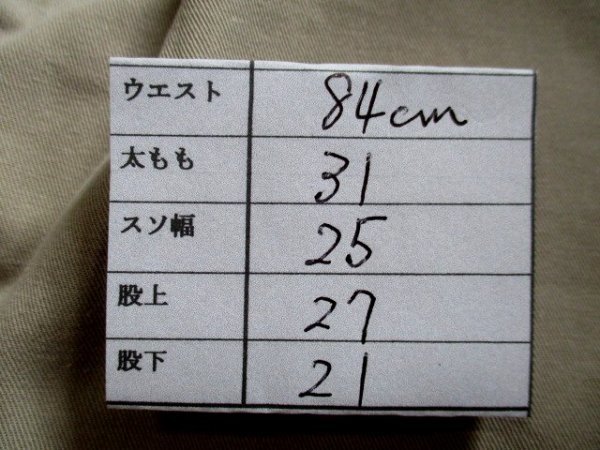 ウエスト 84cm
太もも 31
スソ幅 25
股上 27
股下 21